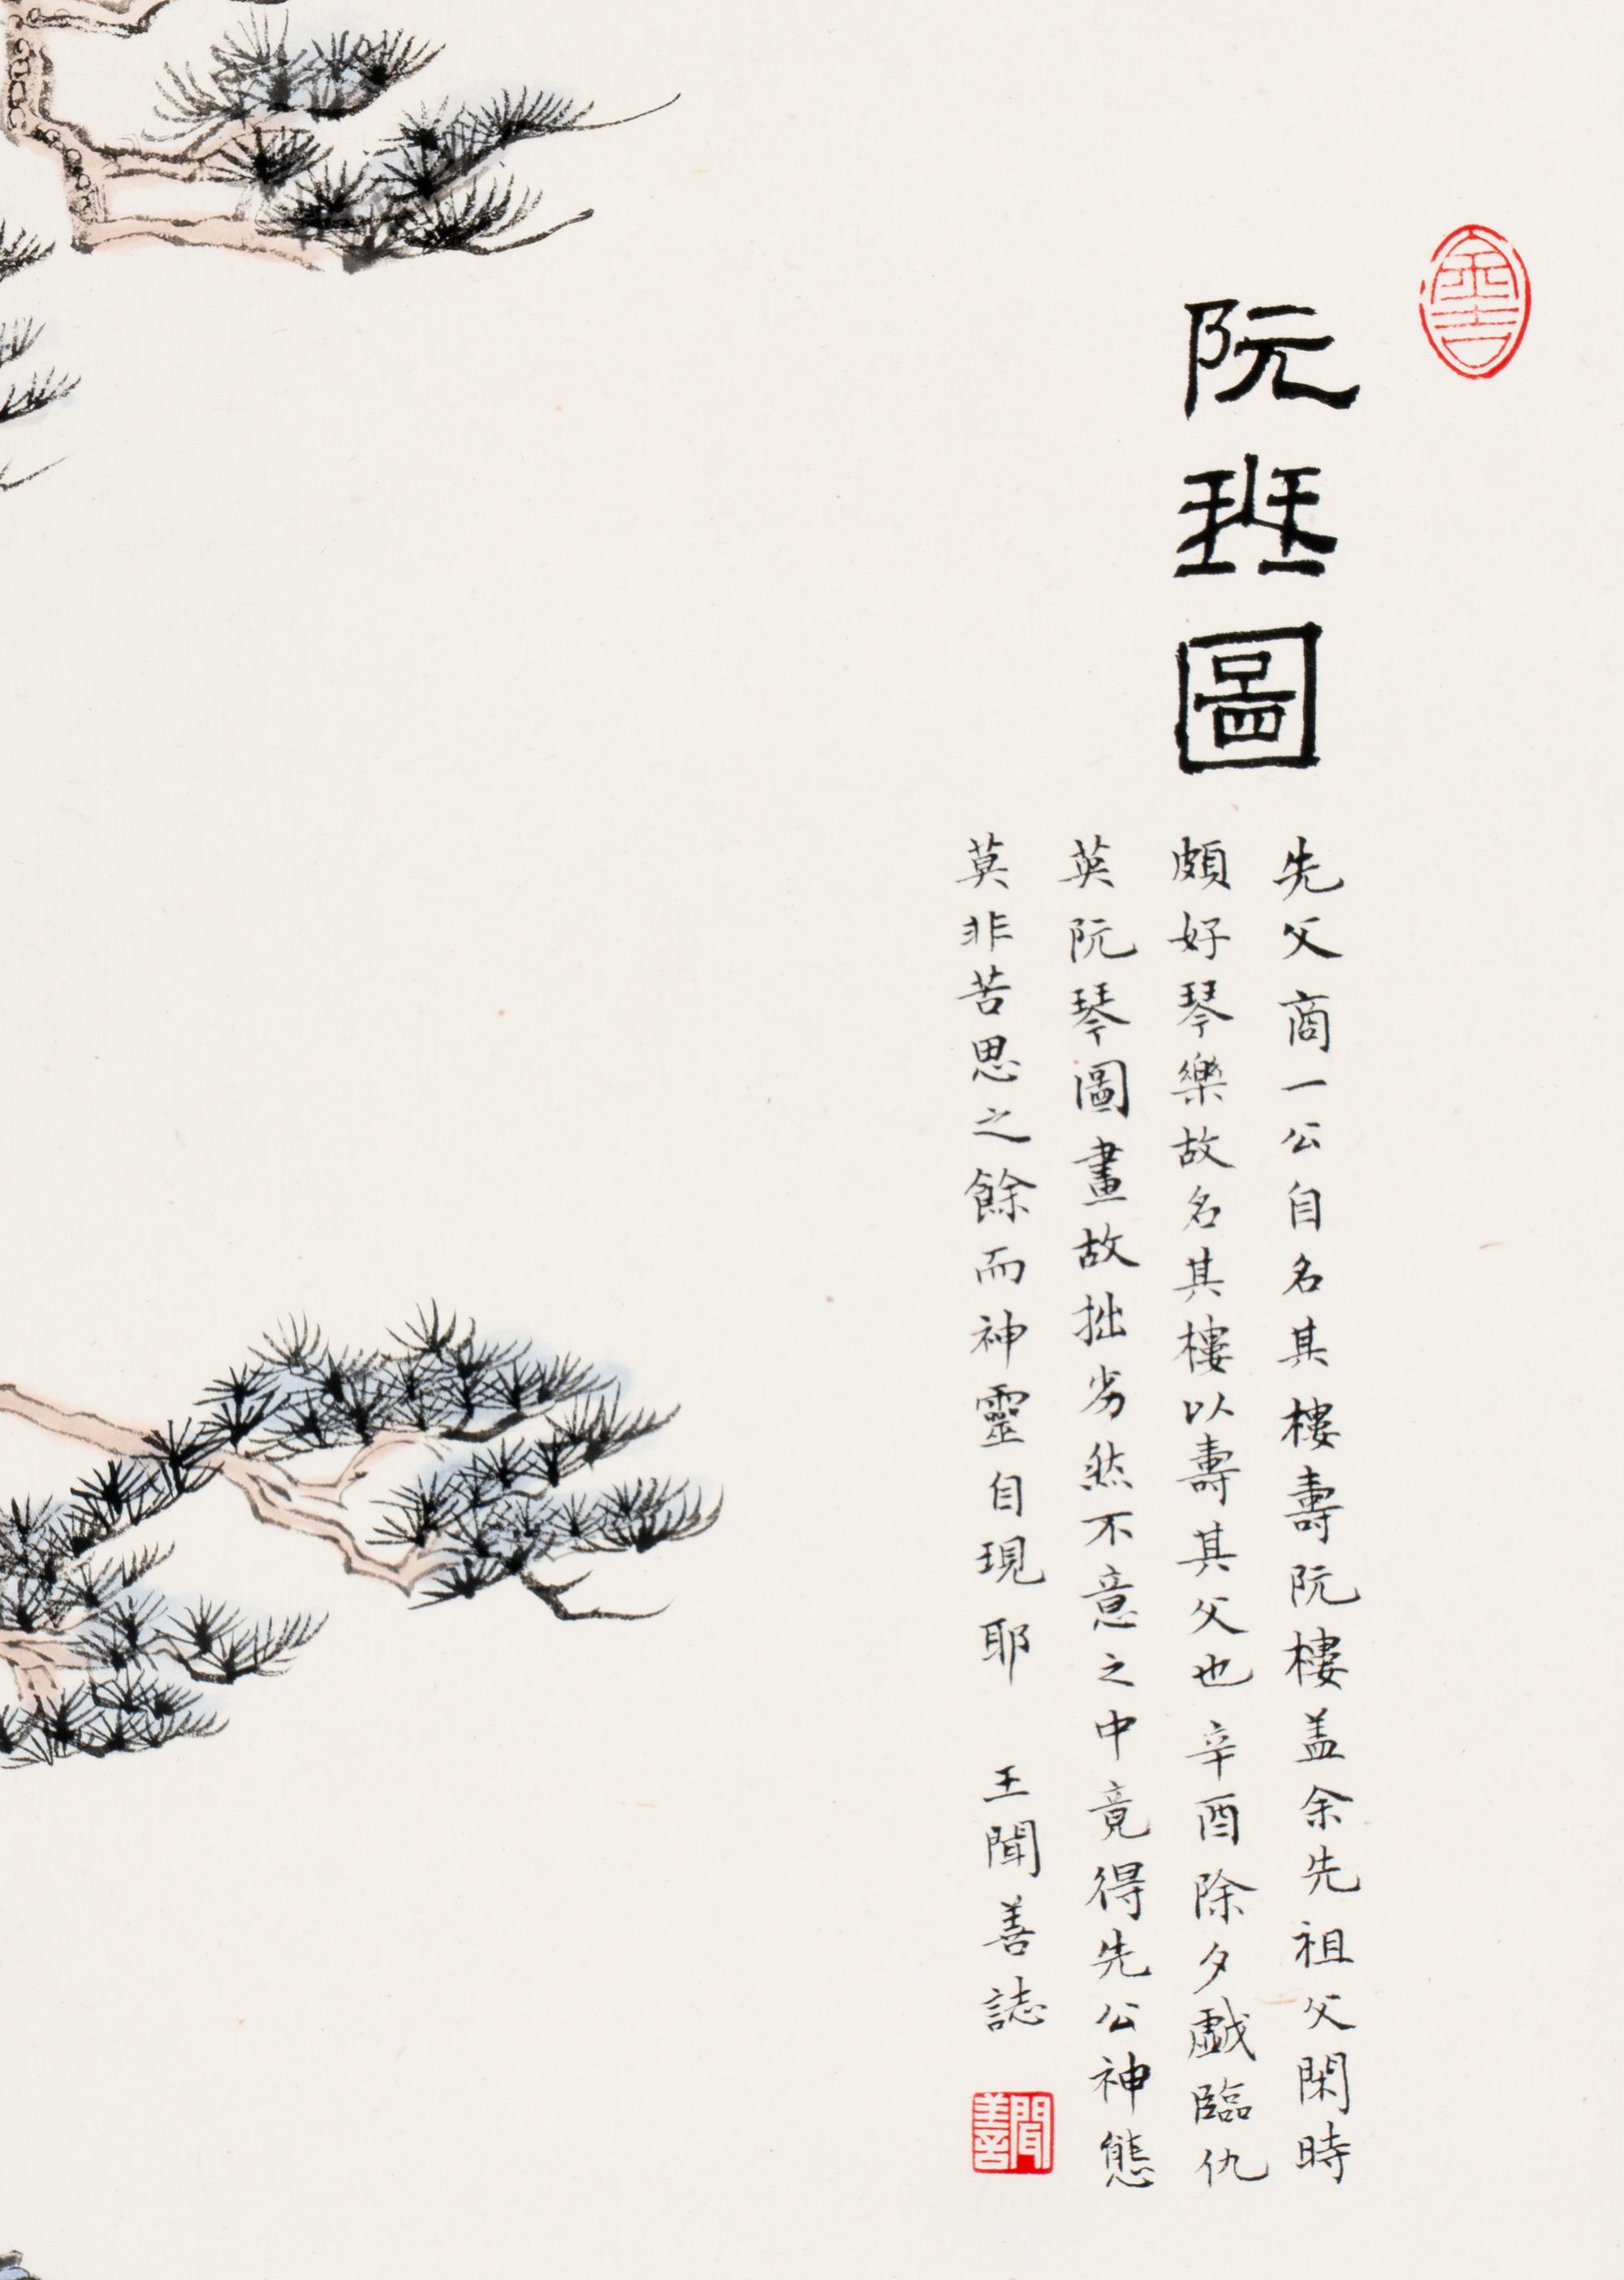 阮琴圖
先父商一公自名其樓壽阮樓盖余先祖父閑時
頗好琴樂故名其樓以壽其父也辛酉除夕戲臨仇
英阮琴圖畫故拙劣然不意之中竟得先公神態
莫非苦思之餘而神靈自現耶 王聞善誌
聞善